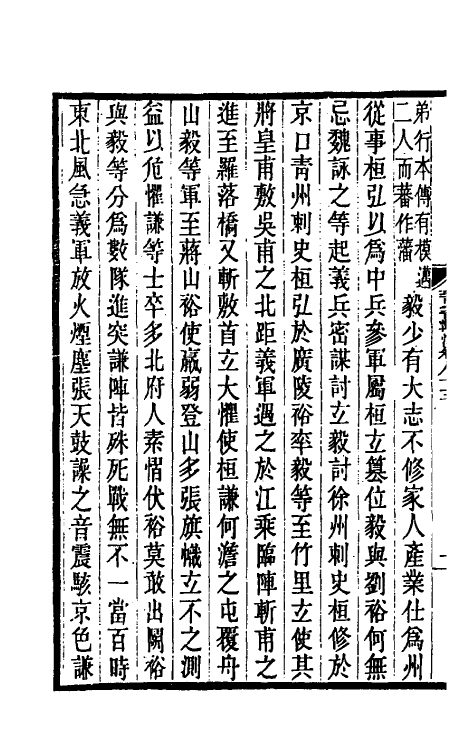 弟行本傳有模邁
二人而蕃作藩
毅少有大志不修家人產業仕爲州
從事桓弘以爲中兵參軍屬桓立篡位毅與劉裕何無
忌魏詠之等起義兵密謀討立毅討徐州刺史桓修於
京口青州刺史桓弘於廣陵裕率毅等至竹里立使其
將皇甫敷吳甫之北距義軍遇之於江乘臨陣斬甫之
進至羅落橋又斬敷首立大懼使桓謙何澹之屯覆舟
山毅等軍至蔣山裕使羸弱登山多張旗幟立不之測
益以危懼謙等士卒多北府人素慴伏裕莫敢出鬭裕
與毅等分爲數隊進突謙陣皆殊死戰無不一當百時
東北風急義軍放火煙塵張天鼓譟之音震駭京色謙